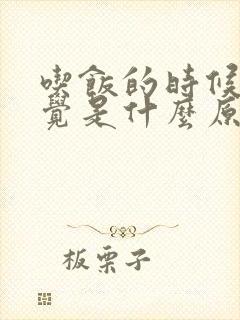 喫飯的時候
覺是什麼原
板栗子